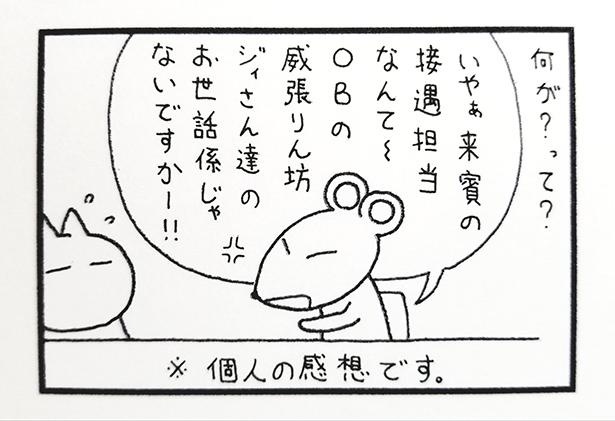 何が？って？
いやぁ来賓の
接遇担当
なんて〜
OBの
威張りん坊
ジィさん達の
お世話係じゃ
ないですかー!!
※個人の感想です。